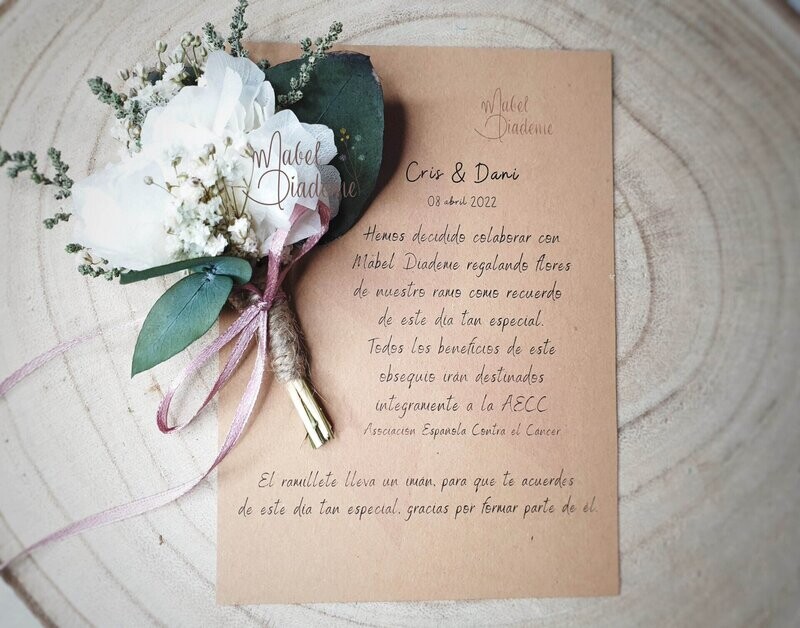 Mabel
Diademe
Mabel
Diademe
Cris & Dani
08 abril 2022
Hemos decidido colaborar con
Mábel Diademe regalando flores
de nuestro ramo como recuerdo
de este día tan especial.
Todos los beneficios de este
obsequio irán destinados
íntegramente a la AECC
Asociación Española Contra el Cáncer.
El ramillete lleva un imán, para que te acuerdes
de este día tan especial, gracias por formar parte de él.